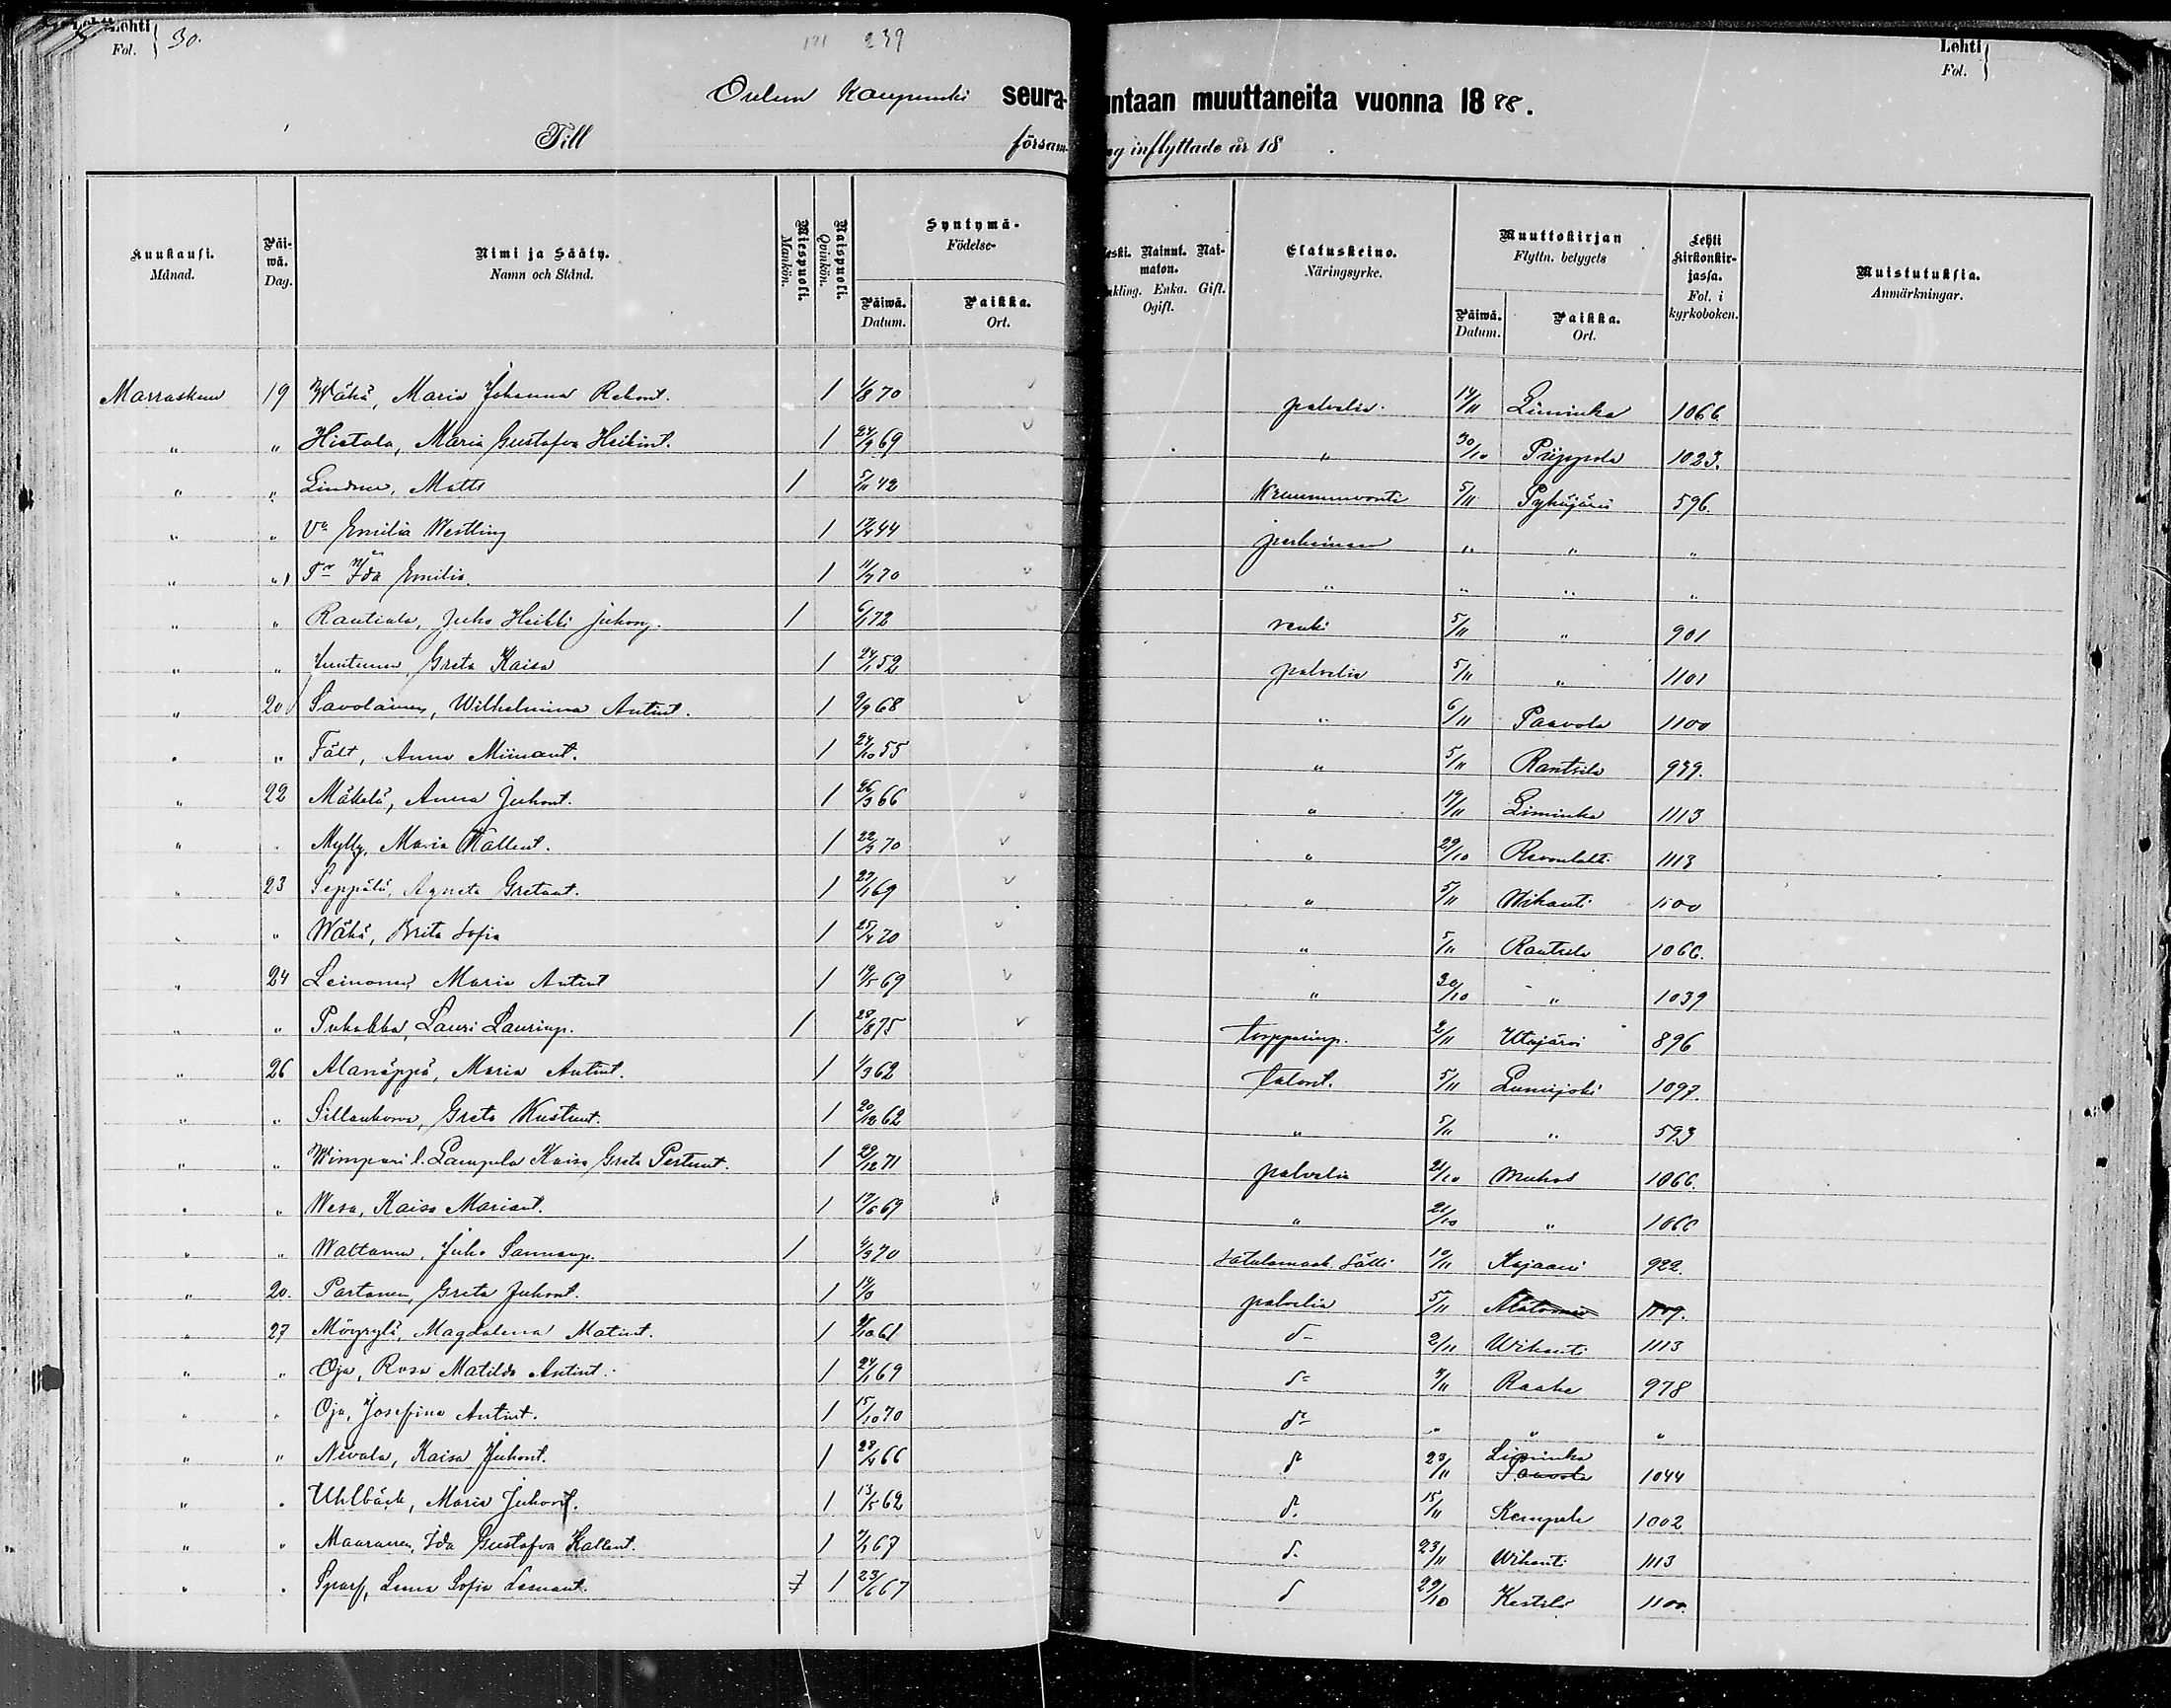 Lehti Fol. 30. 239 Lehti Fol.
Oulun Kaupunki seura- untaan muuttaneita vuonna 18 88.
Till försam- ng inflyttade år 18 .
Kuukausi. Månad. Päi-wä. Dag. Nimi ja Sääty. Namn och Stånd. Miespuoli. Mankön. Naispuoli. Qvinkön. Syntymä- Födelse- Päiwä. Datum. Paikka. Ort. eski. Nainut. Nai-maton. nkling. Enka. Gift. Ogift. Elatuskeino. Näringsyrke. Muuttokirjan Flyttn. betygets Päiwä. Datum. Paikka. Ort. Lehti Kirkonkir-jassa. Fol. i kyrkoboken. Muistutuksia. Anmärkningar.
Marraskuu 19 Wähä, Maria Johanna 1 1/8 70 palvelia 14/11 Liminka 1066
" " Hietala, Maria Gustafva Heikint. 1 24/9 69 " 30/10 Piippola 1023.
" " Matts 1 5/11 42 5/11 Pyhäjärvi 596.
" " Va Emilia Westling 1 44 " " "
" " Tr Ida Emilia. 1 11/7 70 " " " "
" " Rautiala, Juho Heikki Juhonp. 1 6/1 72 renki 5/11 " 901
" " Juntunen Greta Kaisa 1 24/1 52 palvelia 5/11 " 1101
" 20 Savolainen, Wilhelmina Antint. 1 9/9 68 " 6/11 Paavola 1100
" " Fält, Anna Miinant. 1 24/10 55 " 5/11 Rantsila 939.
" 22 Mäkelä, Anna Juhont. 1 26/3 66 " 19/11 Liminka 1113
" " Mylly, Maria Kallent. 1 22/3 70 " 29/10 Revonlahti 1113
" 23 Seppälä, Agneta Gretant. 1 27/1 69 " 5/11 Wihanti 1100
" " Wähä, Brita Sofia 1 25/4 70 " 5/11 Rantsila 1066.
" 24 Leinonen Maria Antint 1 19/5 69 " 30/10 " 1039
" " Puhakka, Lauri Laurinp. 1 28/8 75 torpparinp. 2/11 Utajärvi 896
" 26 Alanäppä, Maria Antint. 1 1/3 62 talont. 5/11 Lumijoki 1097.
" " Greta Kustunt. 1 20/12 62 " 5/11 " 593
" " Wimpari l. Lampela Kaisa Greta Pertunt. 1 29/12 71 palvelia 21/10 Muhos 1066.
" " Wesa, Kaisa Mariant. 1 17/6 69 " 21/10 " 1066
" " Waltanen, Juho Sannanp. 1 4/3 70 satulamaak. sälli 10/11 Kajaani 922.
" 20. Partanen, Greta Juhont. 1 palvelia 5/11 1109.
" 27 Möyrylä, Magdalena Matint. 1 9/10 61 d- 2/11 Wihanti 1113
" " Oja, Rosa Matilda Antint. 1 24/1 69 d- 7/11 Raahe 978
" " Oja, Josefina Antint. 1 15/10 70 d- " " "
" " Nivala, Kaisa Juhont. 1 28/4 66 d- 23/11 Liminka Paavola 1044
" " Uhlbäck, Maria Juhont. 1 13/5 62 d. 15/11 Kempele 1002
" " Mauranen, Ida Gustafva Kallent. 1 7/1 67 d. 23/11 Wihanti 1113
" " Sparf, Leena Sofia 1 23/6 67 d 29/10 Kestilä 1100.